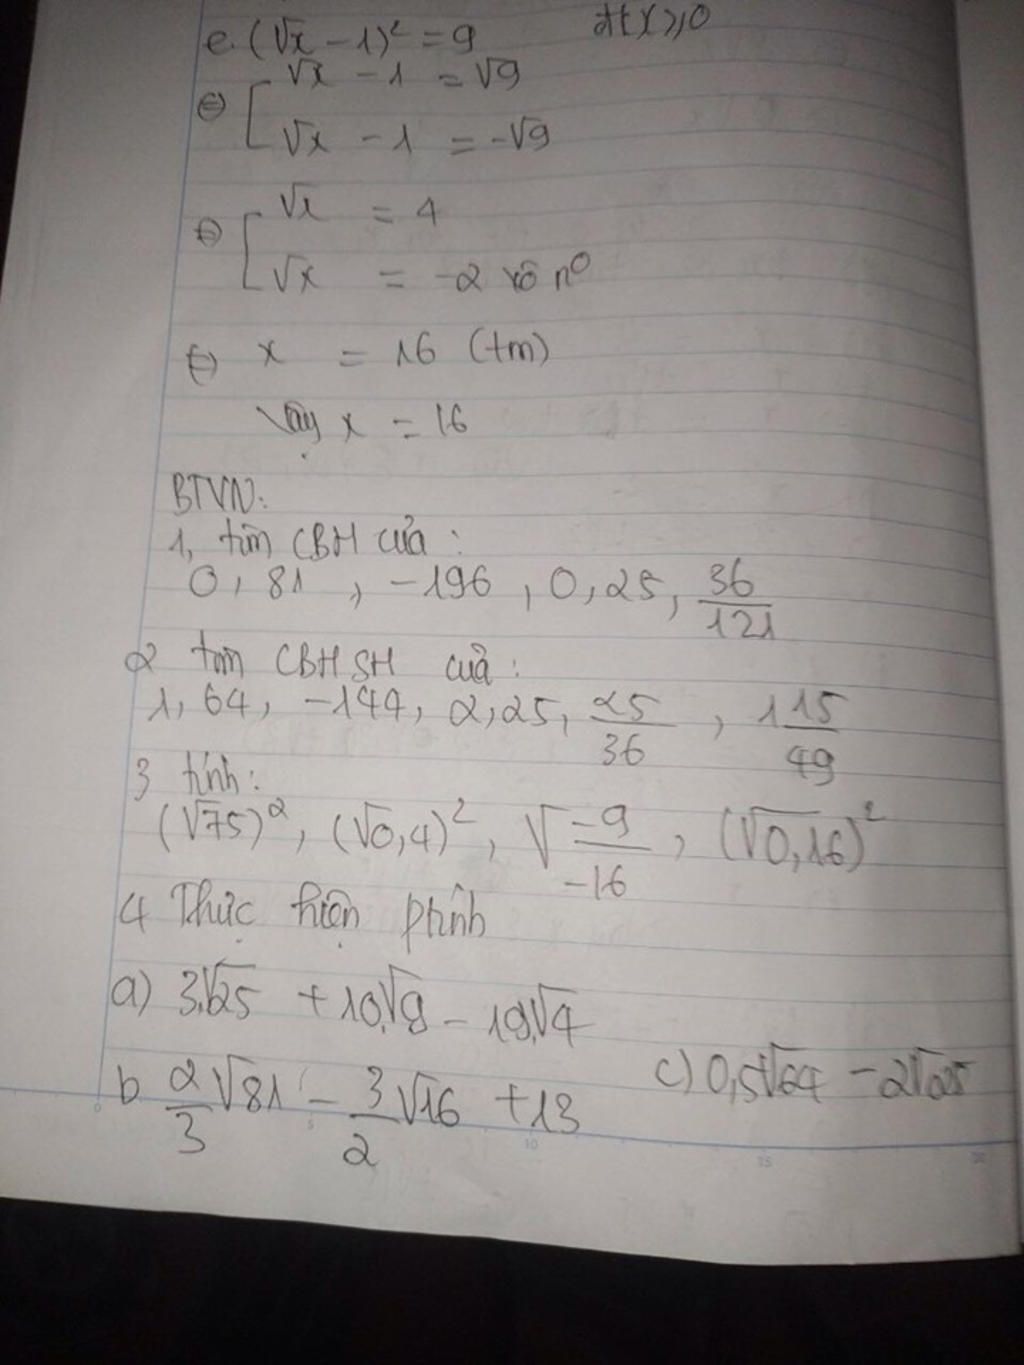 e. (√x - 1)² = 9 đk x ≥ 0
⇔ [ √x - 1 = √9
√x - 1 = -√9
⇔ [ √x = 4
√x = -2 vô n⁰
⇔ x = 16 (tm)
Vậy x = 16
BTVN:
1, tìm CBH của :
0, 81 , -196 , 0, 25, 36/121
2 tìm CBHSH của :
1, 64, -144, 2, 25, 25/36 , 1 15/49
3 tính:
(√75)², (√0,4)², √-9/-16 , (√0,16)²
4 Thực hiện ptính
a) 3.√25 + 10.√9 - 19.√4
b 2/3 √81 - 3/2 √16 + 13
c) 0,5√64 - 2√25
0 5 10 15 20